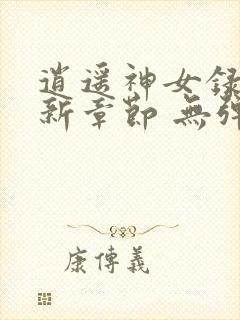 逍遥神女録
新章節 無彈
康傳義